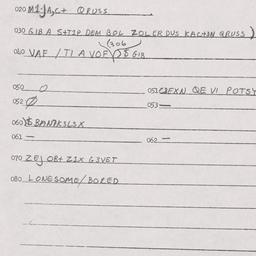 020 M1JA,C+ QRUSS
030 GIB A S+TIP DEM BOL ZOLCR DUS KACTON QRUSS)
(306
040 VAF / TI A VOF $ GIB
050 O
051 CZFXN QE VI POTSY
052 Ø
053 —
060 $ BANTKSLSX
061 —
062 —
070 ZEJ OB+ ZIX G3VET
080 LONESOME/BORED